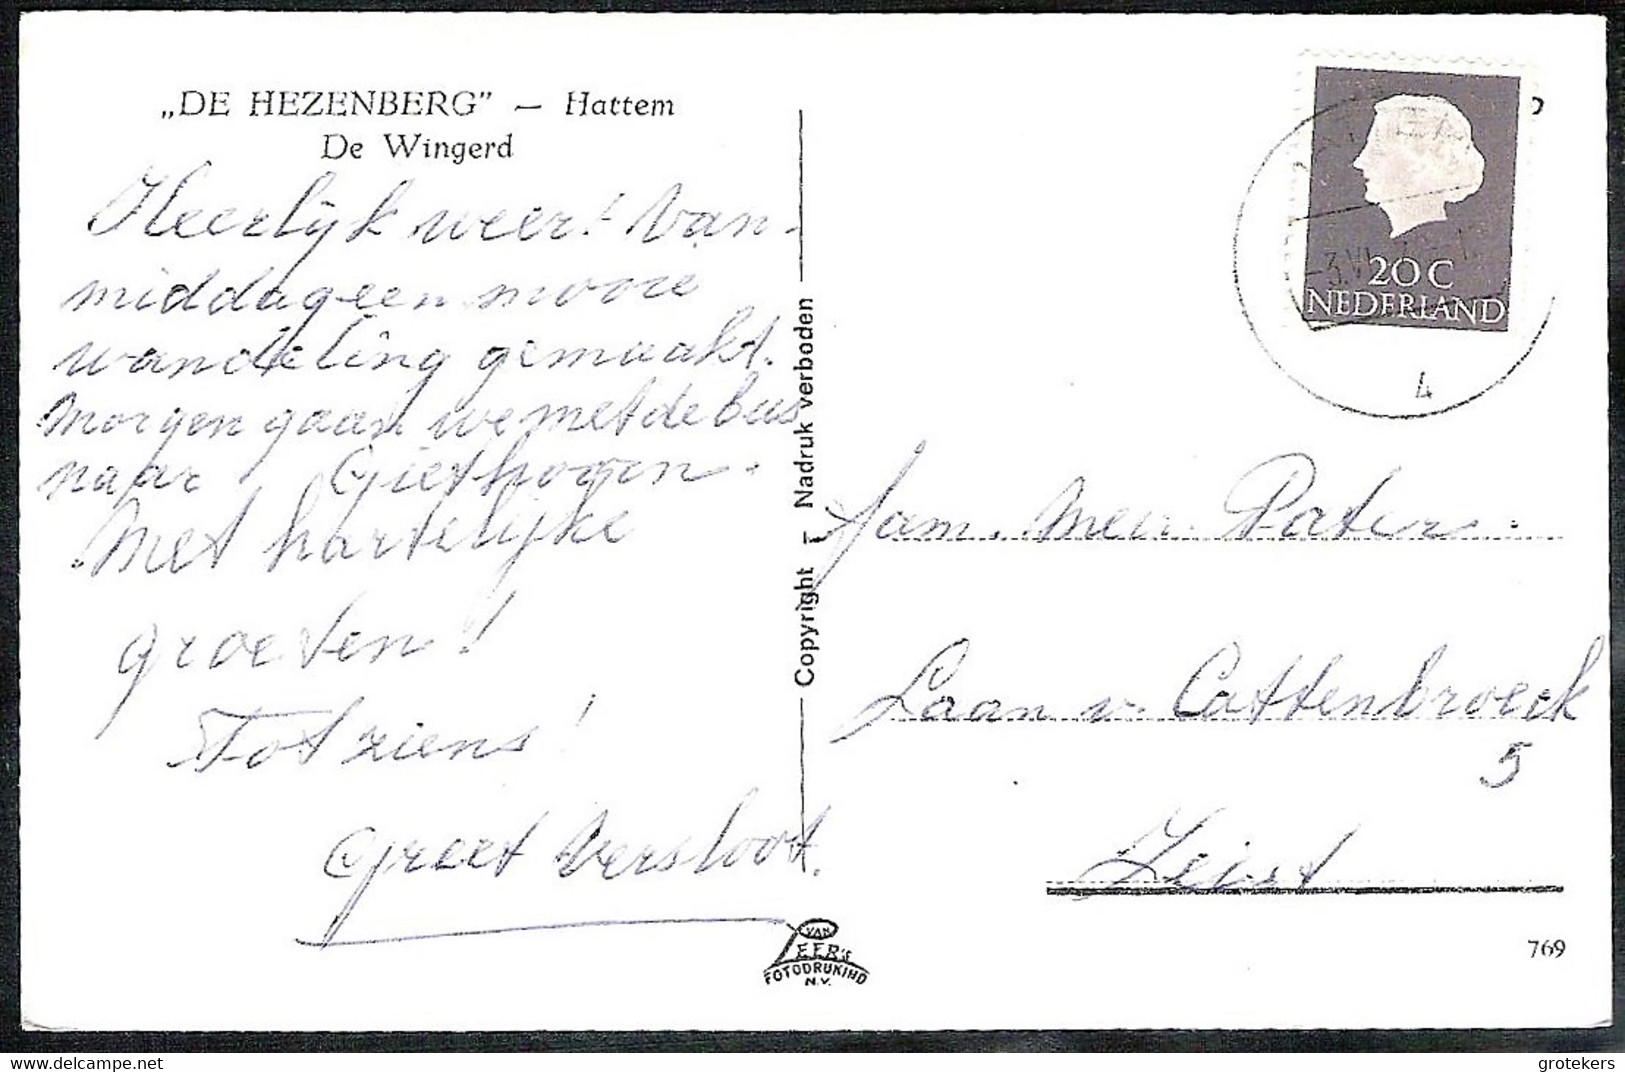 „DE HEZENBERG” — Hattem
De Wingerd
Heerlijk weer! Van-
middag een mooie
wandeling gemaakt.
Morgen gaan we met de bus
naar Giethoorn.
Met hartelijke
groeten!
Tot ziens!
Greet Versloot.
Copyright - Nadruk verboden
VAN
LEER's
FOTODRUKIND
N.V.
20 C
NEDERLAND
4
Fam. Pater.
Laan v. Cattenbroeck
5
Zeist
769
grotekers